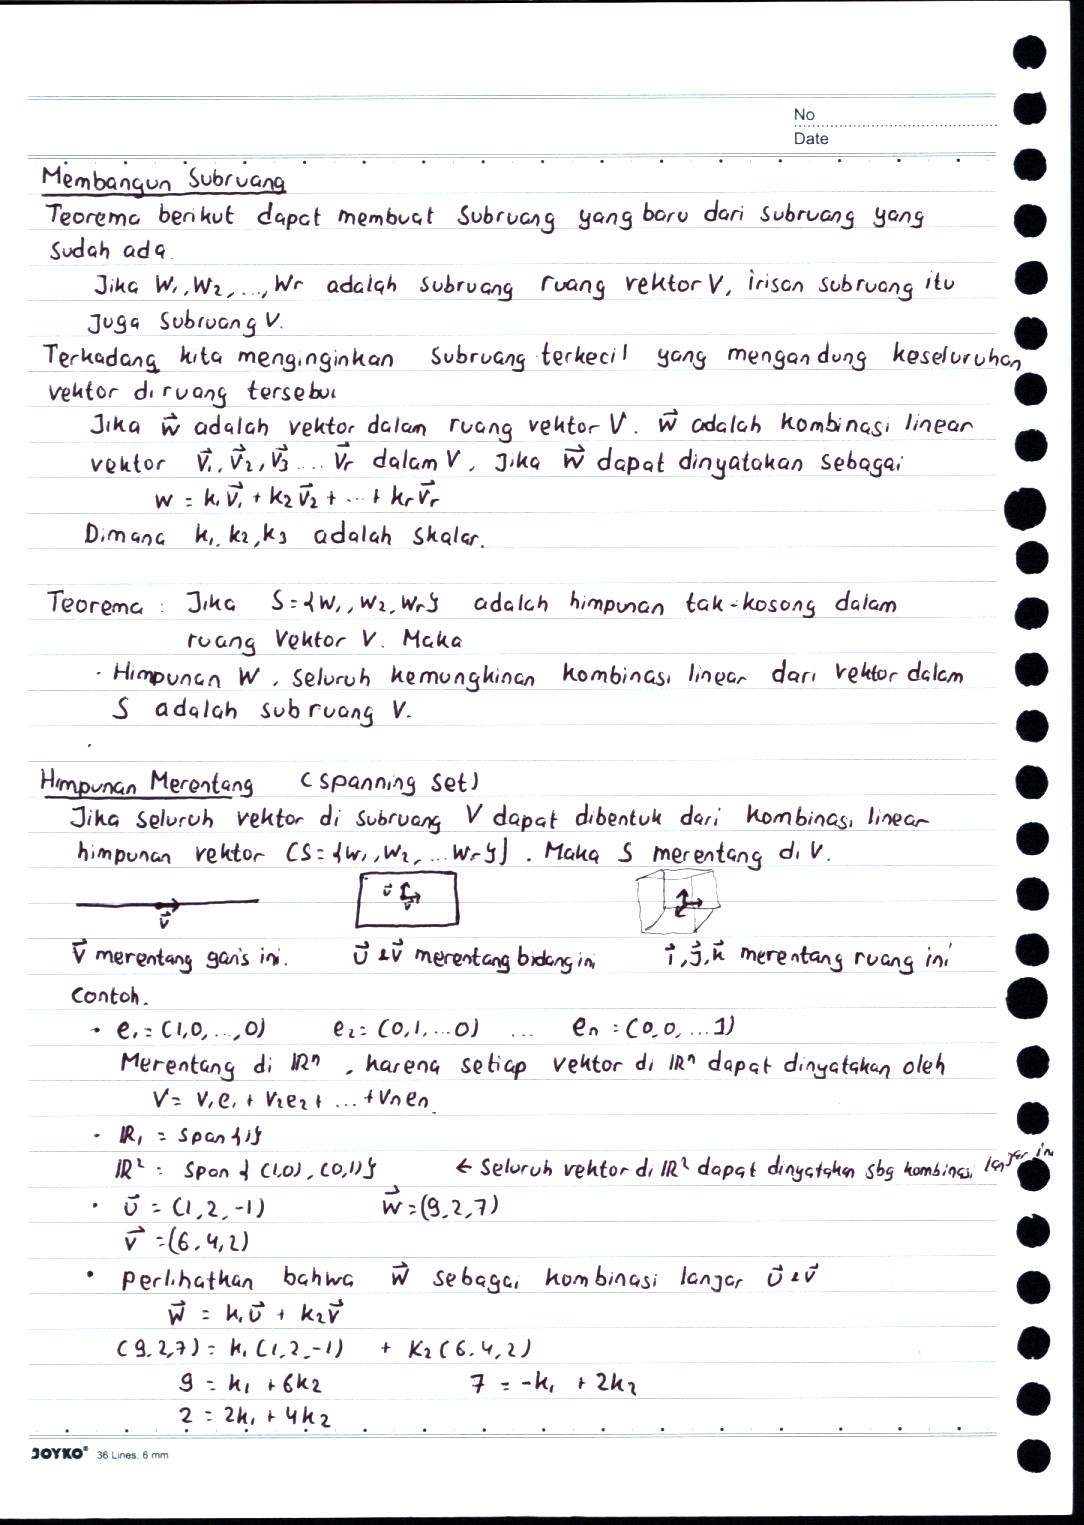 No
Date
Membangun Subruang
Teorema berikut dapat membuat subruang yang baru dari subruang yang
sudah ada.
Jika W₁, W₂, ..., Wr adalah subruang ruang vektor V, irisan subruang itu
Juga Subruang V.
Terkadang kita menginginkan subruang terkecil yang mengandung keseluruhan
vektor diruang tersebut
Jika w⃗ adalah vektor dalam ruang vektor V. w⃗ adalah kombinasi linear
vektor v⃗₁, v⃗₂, v⃗₃ ... v⃗r dalam V, Jika w⃗ dapat dinyatakan sebagai
w = k₁v⃗₁ + k₂v⃗₂ + ... + krv⃗r
Dimana k₁, k₂, k₃ adalah skalar.
Teorema : Jika S={W₁, W₂, Wr} adalah himpunan tak-kosong dalam
ruang Vektor V. Maka
· Himpunan W, seluruh kemungkinan kombinasi linear dari vektor dalam
S adalah subruang V.
Himpunan Merentang (spanning set)
Jika seluruh vektor di subruang V dapat dibentuk dari kombinasi linear
himpunan vektor (S={W₁, W₂, ... Wr}). Maka S merentang di V.
v⃗ u⃗ v⃗
v⃗ merentang garis ini. u⃗ & v⃗ merentang bidang ini i⃗, j⃗, k⃗ merentang ruang ini
Contoh.
· e₁ = (1,0,...,0) e₂ = (0,1,...0) ... en = (0,0,...1)
Merentang di ℝⁿ, karena setiap vektor di ℝⁿ dapat dinyatakan oleh
V = V₁e₁ + V₂e₂ + ... + Vnen
· ℝ₁ = span{1}
ℝ² = span{(1,0), (0,1)} ← seluruh vektor di ℝ² dapat dinyatakan sbg kombinasi lanjar ini
· u⃗ = (1,2,-1) w⃗ = (9,2,7)
v⃗ = (6,4,2)
· Perlihatkan bahwa w⃗ sebagai kombinasi lanjar u⃗ & v⃗
w⃗ = k₁u⃗ + k₂v⃗
(9,2,7) = k₁(1,2,-1) + k₂(6,4,2)
9 = k₁ + 6k₂ 7 = -k₁ + 2k₂
2 = 2k₁ + 4k₂
JOYKO® 36 Lines, 6 mm